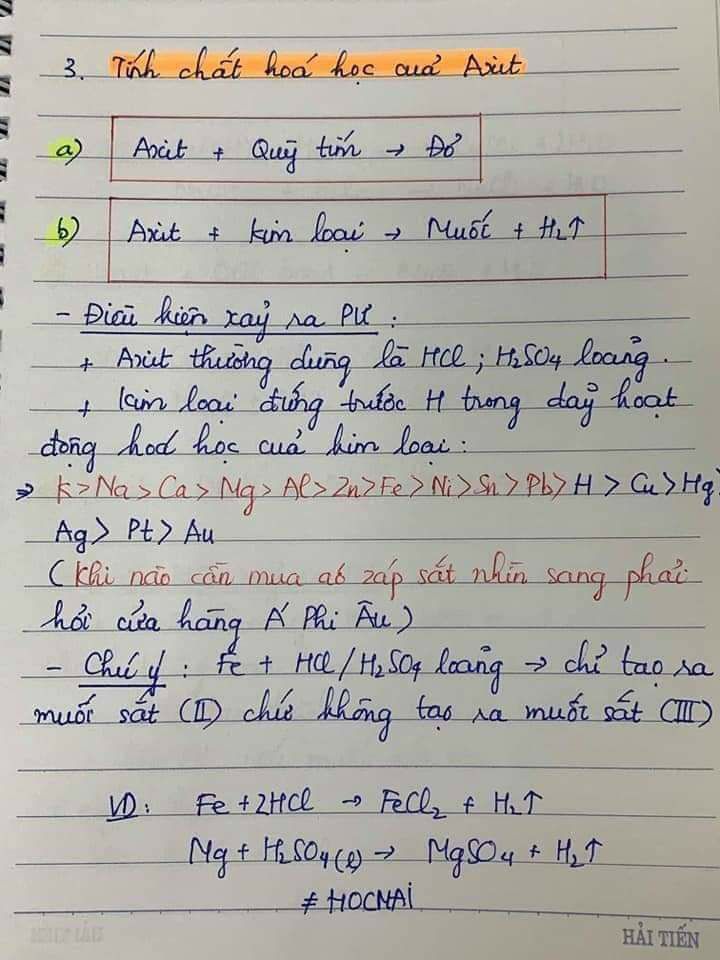 3. Tính chất hoá học của Axit
a) Axit + Quỳ tím → Đỏ
b) Axit + kim loại → Muối + H₂↑
- Điều kiện xảy ra PƯ :
+ Axit thường dùng là HCl ; H₂SO₄ loãng.
+ Kim loại đứng trước H trong dãy hoạt
động hoá học của kim loại :
⇒ K > Na > Ca > Mg > Al > Zn > Fe > Ni > Sn > Pb > H > Cu > Hg >
Ag > Pt > Au
( Khi nào cần mua aó záp sắt nhìn sang phải
hỏi cửa hàng Á Phi Âu )
- Chú ý : Fe + HCl/H₂SO₄ loãng → chỉ tạo ra
muối sắt (II) chứ không tạo ra muối sắt (III)
VD: Fe + 2HCl → FeCl₂ + H₂↑
Mg + H₂SO₄(l) → MgSO₄ + H₂↑
≠ HOCMAI
HẢI TIẾN